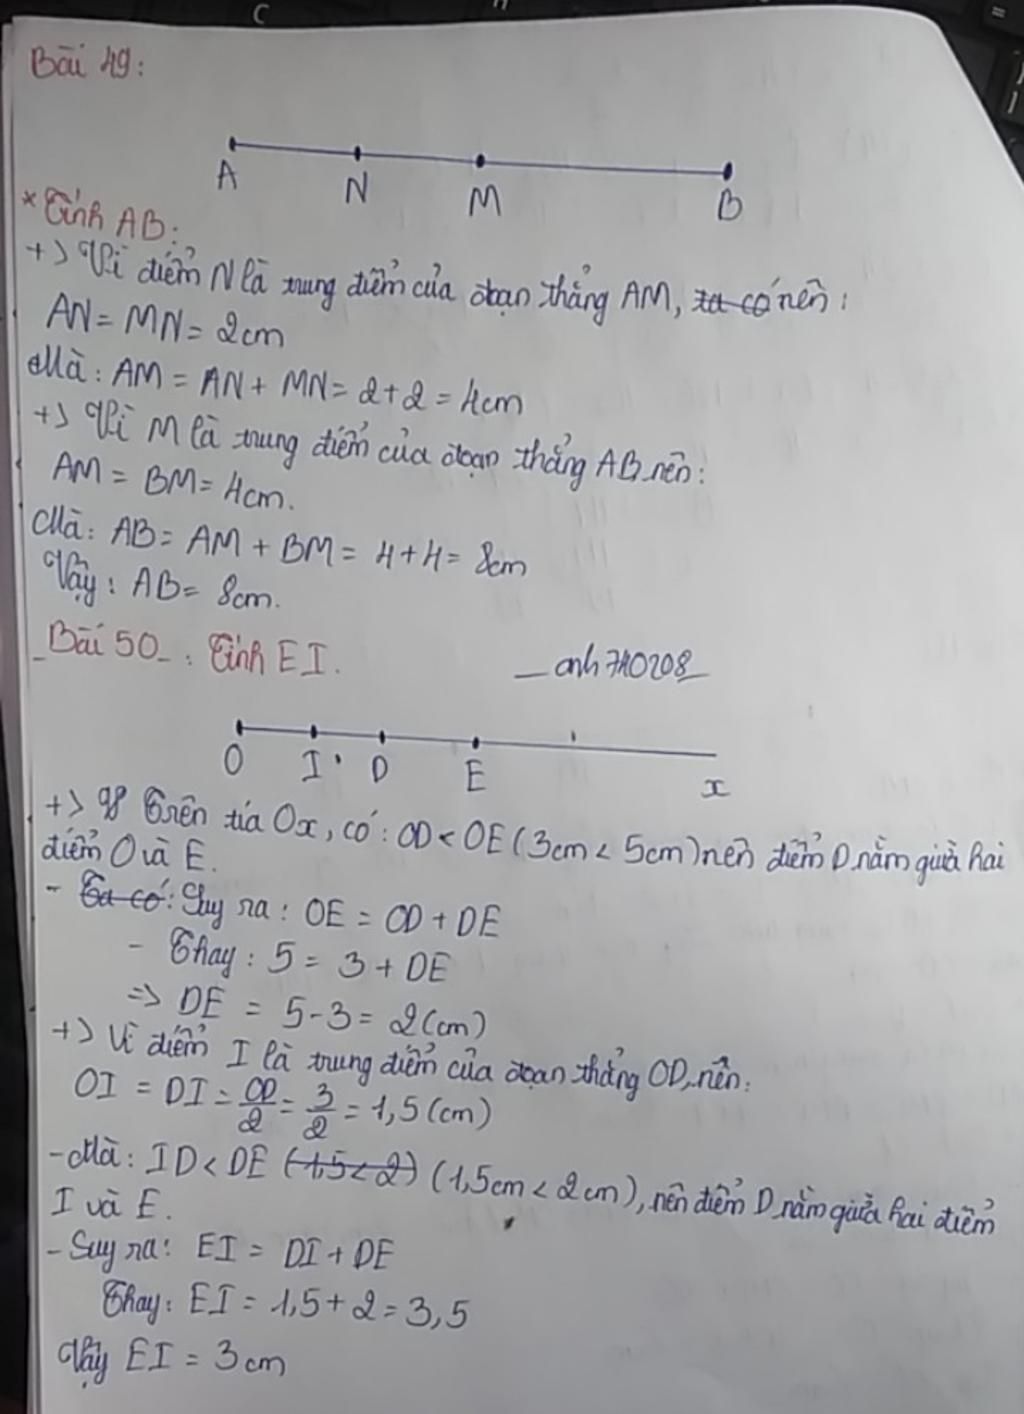 Bài 49:
A N M B
* Tính AB:
+> Vì điểm N là trung điểm của đoạn thẳng AM, ta có nên:
AN = MN = 2cm
Mà: AM = AN + MN = 2 + 2 = 4cm
+> Vì M là trung điểm của đoạn thẳng AB nên:
AM = BM = 4cm.
Mà: AB = AM + BM = 4 + 4 = 8cm
Vậy: AB = 8cm.
_Bài 50_: Tính EI.
_anh740208_
O I D E x
+> Trên tia Ox, có: OD < OE (3cm < 5cm) nên điểm D nằm giữa hai
điểm O và E.
- Ta có: Suy ra: OE = OD + DE
- Thay: 5 = 3 + DE
=> DE = 5 - 3 = 2(cm)
+> Vì điểm I là trung điểm của đoạn thẳng OD, nên:
OI = DI = OD/2 = 3/2 = 1,5(cm)
- Mà: ID < DE (1,5 < 2) (1,5cm < 2cm), nên điểm D nằm giữa hai điểm
I và E.
- Suy ra: EI = DI + DE
Thay: EI = 1,5 + 2 = 3,5
Vậy EI = 3cm